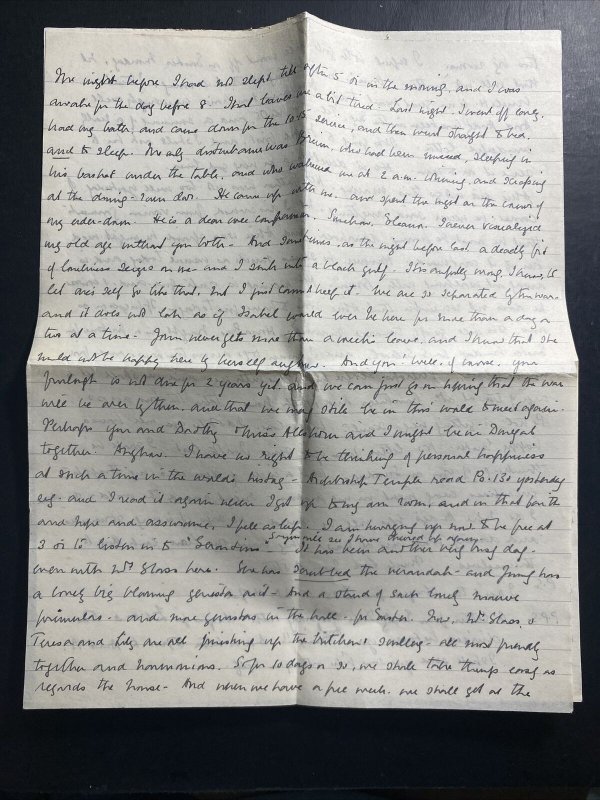 The night before I had not slept till after 5 or in the morning, and I was
awake for the day before 8. That leaves me a bit tired. Last night I went off early.
had my bath and came down for the 10.15 service, and then went straight to bed.
and to sleep. The only disturbance was Bruin, who had been missed, sleeping in
his basket under the table, and who wakened me at 2 a.m. whining, and scraping
at the dining-room door. He came up with me. and spent the night on the corner of
my eider-down. He is a dear wee companion. Somehow, Eleana, I never visualized
my old age without you both - And sometimes, as the night before last a deadly fit
of loneliness seizes on me - and I sink into a black gulf. It is awfully wrong, I know, to
let one's self go like that, but I just cannot help it. We are so separated by the war -
and it does not look as if Isabel would ever be here for more than a day or
two at a time - John never gets more than a week's leave, and I know that she
would not be happy here by herself anyhow. And you! well, of course, your
furlough is not due for 2 years yet. and we can just go on hoping that the war
will be over by then, and that we may still be in this world to meet again.
Perhaps you and Dorothy & Miss and I might be in Donegal
together. Anyhow. I have no right to be thinking of personal happiness
at such a time in the world's history - Archbishop Temple read Ps. 130 yesterday
evg. and I read it again when I got up to my own room, and in that faith
and hope and assurance, I fell asleep. I am hurrying up now to be free at
3 or to listen in to "Gerontius" - It has been another very busy day.
So you will see I have cheered up again.
even with Mrs Sloss here. She has scrubbed the verandah - and Jenny has
a lovely big blooming genista and - And a stand of such lovely mauve
primulas - and more genistas in the hall - for Easter. Now, Mrs Sloss, &
Teresa and Lily are all finishing up the kitchen & scullery - all most friendly
together and harmonious. So for 10 days or so, we shall take things easy as
regards the house - And when we have a free week. we shall get at the